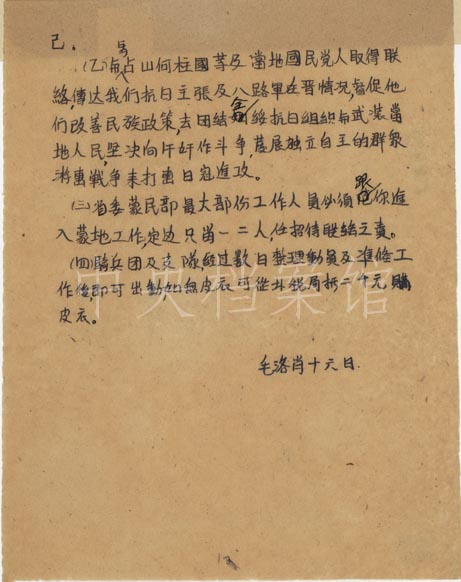 己.
(乙)与马占山何柱國等及當地國民党人取得联
絡,傳达我们抗日主張及八路軍在晋情況,督促他
们改善民族政策,去团结绥蒙抗日組織与武装當
地人民,坚决向汗奸作斗争,發展独立自主的群眾
游击戰争来打击日寇進攻。
(三)省委蒙民部最大部份工作人員必須跟你進
入蒙地工作,定边只留一二人,任招待联絡之責。
(四)騎兵团及支隊,經过數日整理動員及準俻工
作後即可出動,如無皮衣可從外銳局拆二千元,購
皮衣。
毛洛肖十六日.
中央档案馆